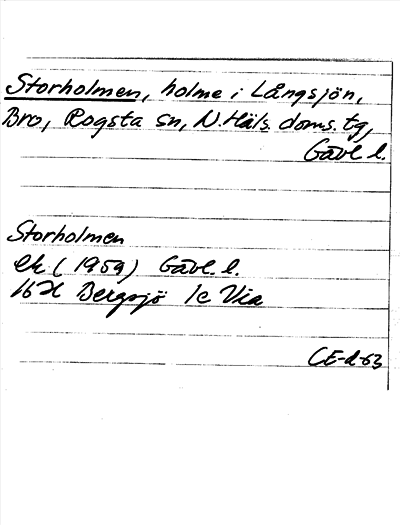 Storholmen, holme i Långsjön,
Bro, Rogsta sn, N. Häls. doms. tg,
Gävl l.
Storholmen
ek (1959) Gävl. l.
16H Bergsjö 1c Via
CE-d-63